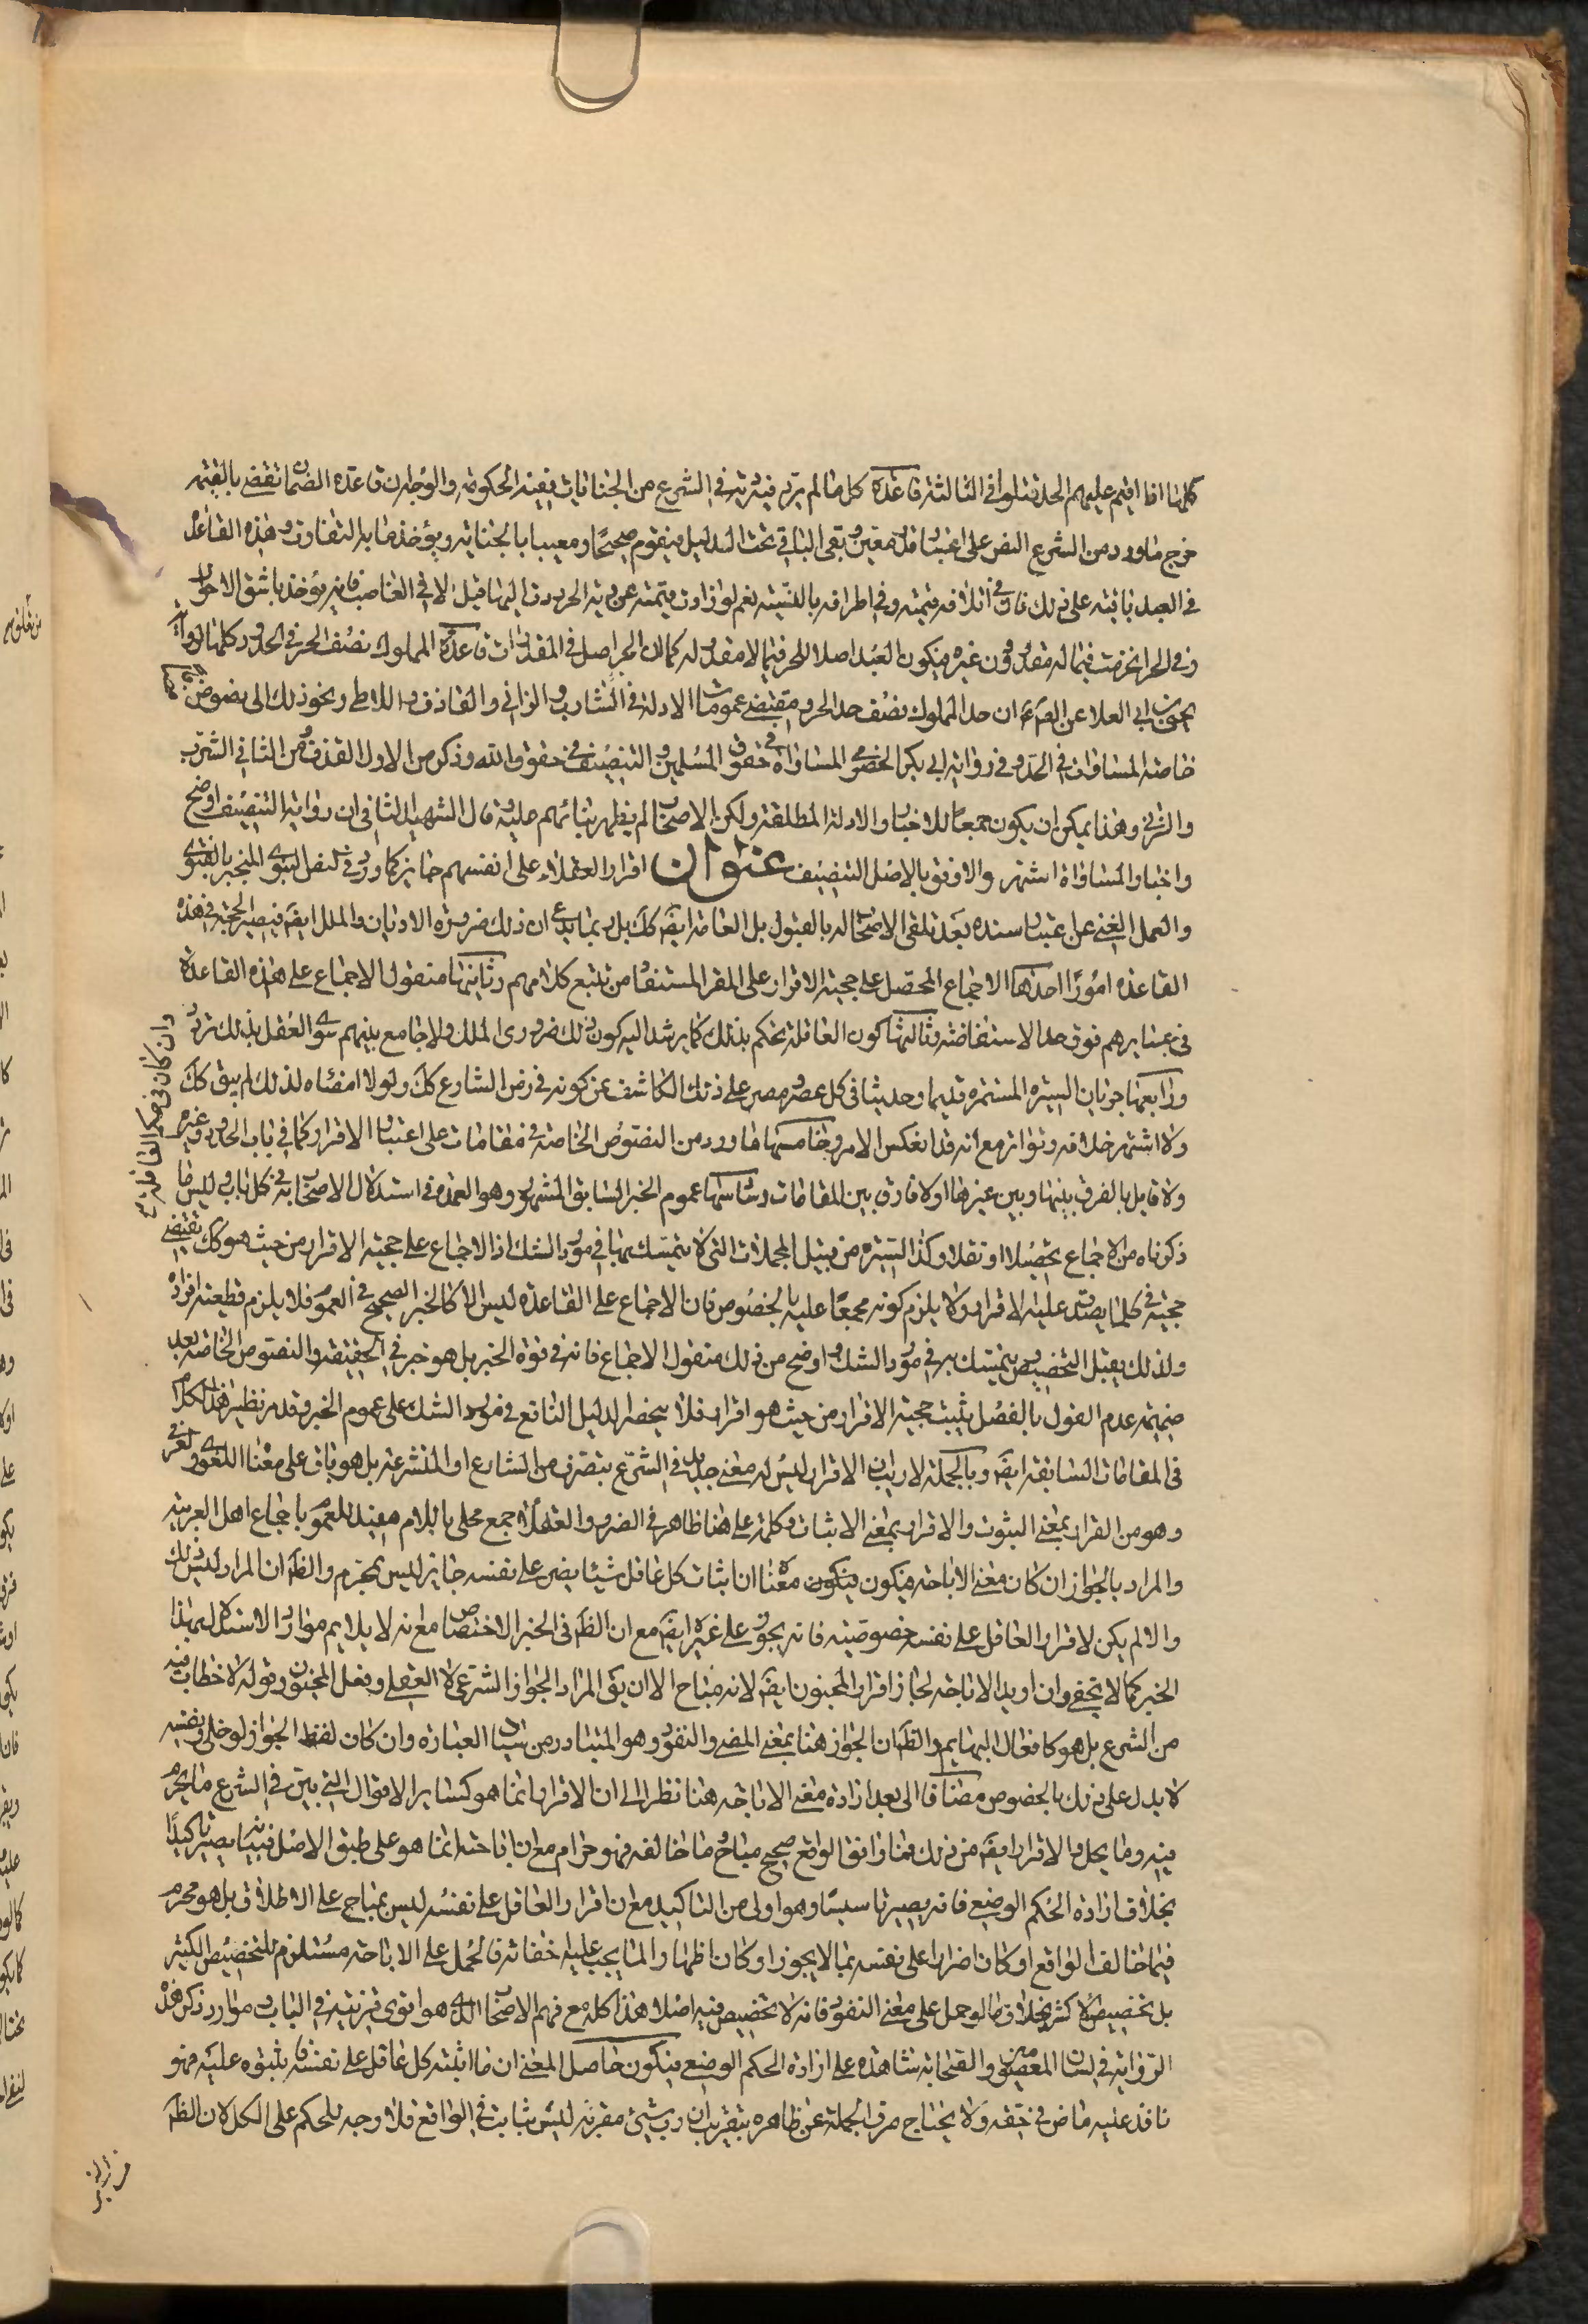 كلها اذا اقيم عليهم الحد قتلوا في الثالثة قاعدة كل ما لم يرد فيه دية في الشرع من الجنايات ففيه الحكومة والوجه ان قاعدة الضمان تقضى بالقيمة
خرج ما ورد من الشرع النص على اعتبار قدر معين وبقى الباقي تحت الدليل فيقوم صحيحا ومعيبا بالجناية ويؤخذ ما به التفاوت وهذه القاعدة
في العبد ثابتة على ذلك ففي اتلافه قيمته وفي اطرافه بالنسبة نعم لو زادت قيمته عن دية الحر ردت اليها قيل الا في الغاصب فانه يؤخذ باشق الاحوال
وفي الحر انخرمت فيما له مقدر دون غيره فيكون العبد اصلا للحر فيما لا مقدر له كما ان الحر اصل في المقدرات قاعدة المملوك نصف الحر في الحدود كلها لرواية
يحيى بن ابي العلا عن الصم ع ان حد المملوك نصف حد الحر ومقتضى عمومات الادلة في الشارب والزاني والقاذف واللاطى ونحو ذلك الى نصوص
خاصة المساوات في الحد وفي رواية ابي بكر الحضرمي المساواة في حقوق المسلمين والتنصيف في حقوق الله وذكر من الاول القذف ومن الثاني الشرب
والزنى وهذا يمكن ان يكون جمعا للاخبار والادلة المطلقة ولكن الاصحاب لم يظهر بنائهم عليه قال الشهيد الثاني ان رواية التنصيف اوضح
واخبار المساواة اشهر والاوفق بالاصل التنصيف عنوان اقرار العقلاء على انفسهم جايز كما ورد في النص النبوى المنجبر بالفتوى
والعمل الغني عن اعتبار سنده بعد تلقى الاصحاب له بالقبول بل العامة ايضم كك بل ربما يدعى ان ذلك ضرورة الاديان والملل ايضم فيصير الحجة في هذه
القاعدة امورا احدها الاجماع المحصل على حجية الاقرار على المقر المستفاد من تتبع كلامهم وثانيها منقول الاجماع على هذه القاعدة
في عبايرهم فوق حد الاستفاضة وثالثها كون العاقلة تحكم بذلك كما يرشد اليه كون ذلك ضرورى الملل ولا جامع بينهم سوى العقل بذلك
ورابعها جريان السيرة المستمرة قديما وحديثا في كل عصر ومصر على ذلك الكاشف عن كونه في زمن الشارع كك ولولا امضاه لذلك لم يبق كك
وان كان في حكم العاقلة
ولا اشتهر خلافه وتواتر مع انه قد انعكس الامر وخامسها ما ورد من النصوص الخاصة في مقامات على اعتبار الاقرار كما في باب الحدود وغيره
ولا قايل بالفرق بينها وبين غيرها اولا فارق بين المقامات وسادسها عموم الخبر السابق المشهور وهو العمدة في استدلال الاصحاب به في كل باب وليس ما
ذكرناه من الاجماع تحصيلا او نقلا وكذا السيرة من قبيل المجملات التى لا يتمسك بها في مورد الشك اذ الاجماع على حجية الاقرار من حيث هو كك تقتضى
حجيته في كلما يصدق عليه الاقرار ولا يلزم كونه مجمعا عليه بالخصوص فان الاجماع على القاعدة ليس الا كالخبر الصحيح في العموم فلا يلزم قطعية افراده
ولذلك يقبل التخصيص ويتمسك به في مورد الشك واوضح من ذلك منقول الاجماع فانه في قوة الخبر بل هو خبر في الحقيقة والنصوص الخاصة بعد
ضميمة عدم القول بالفصل يثبت حجية الاقرار من حيث هو اقرار فلا ينحصر الدليل النافع في مورد الشك على عموم الخبر وقد مر نظير هذا الكلام
في المقامات السابقة ايضم وبالجملة لا ريب ان الاقرار ليس له معنى جديد في الشرع بتصرف من الشارع او المتشرعة بل هو باق على معناه اللغوى والعرفي
وهو من القرار بمعنى الثبوت والاقرار بمعنى الاثبات وكلمة على هنا ظاهر في الضرر والعقلاء جمع محلى باللام مفيد للعموم باجماع اهل العربية
والمراد بالجواز ان كان معنى الاباحة فيكون فيكون معناه ان اثبات كل عاقل شيئا يضر على نفسه جايز ليس بمحرم والظم ان المراد ليس ذلك
والا لم يكن لاقرار العاقل على نفسه خصوصية فانه يجوز على غيره ايضم مع ان الظم في الخبر الاختصاص مع انه لا يلايم موارد الاستدلال بهذا
الخبر كما لا يخفى وان اريد الاباحة لجاز اقرار المجنون ايضم لانه مباح الا ان يق المراد الجواز الشرعى لا العقلى وفعل المجنون وقوله لا خطاب فيه
من الشرع بل هو كافعال البهايم والظم ان الجواز هنا بمعنى المضى والنفوذ وهو المتبادر من سياق العبارة وان كان لفظ الجواز لو خلى ونفسه
لا يدل على ذلك بالخصوص مضافا الى بعد ارادة معنى الاباحة هنا نظرا الى ان الاقرار انما هو كساير الاقوال التى بين في الشرع ما يحرم
فيه وما يحل والاقرار ايضم من ذلك فما وافق الواقع صحيح مباح وما خالفه فهو حرام مع ان اباحته انما هو على طبق الاصل فبيانه يصير تاكيدا
بخلاف ارادة الحكم الوضعى فانه يصير تاسيسا وهو اولى من التاكيد مع ان اقرار العاقل على نفسه ليس بمباح على الاطلاق بل هو محرم
فيما خالف الواقع او كان اضرارا على نفسه بما لا يجوز او كان اظهارا لما يجب عليه خفائه فالحمل على الاباحة مستلزم للتخصيص الكثير
بل تخصيص الاكثر بخلاف ما لو حمل على معنى النفوذ فانه لا تخصيص فيه اصلا هذا كله مع فهم الاصحاب الذى هو اقوى قرينة في الباب وموارد ذكر هذه
الرواية في لسان المعصومين والصحابة شاهدة على ارادة الحكم الوضعى فيكون حاصل المعنى ان ما اثبته كل عاقل على نفسه فثبوته عليه فهو
نافذ عليه ماض في حقه ولا يحتاج صرف الجملة عن ظاهره بتقريب ان رب شيئ مقر به ليس بثابت في الواقع فلا وجه للحكم على الكل لان الظم